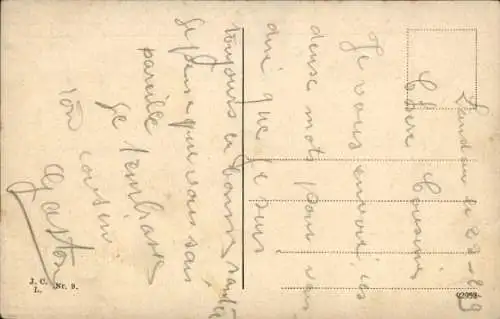 le 23
Chère Cousine
Je vous envoie ces
deuse mots pour vous
dire que Je suis
toujours en bonne santée
Je pense que vous sais
pareille
Je t'embrasse
ton cousin
Gaston
J. C.
L. Nr. 9.